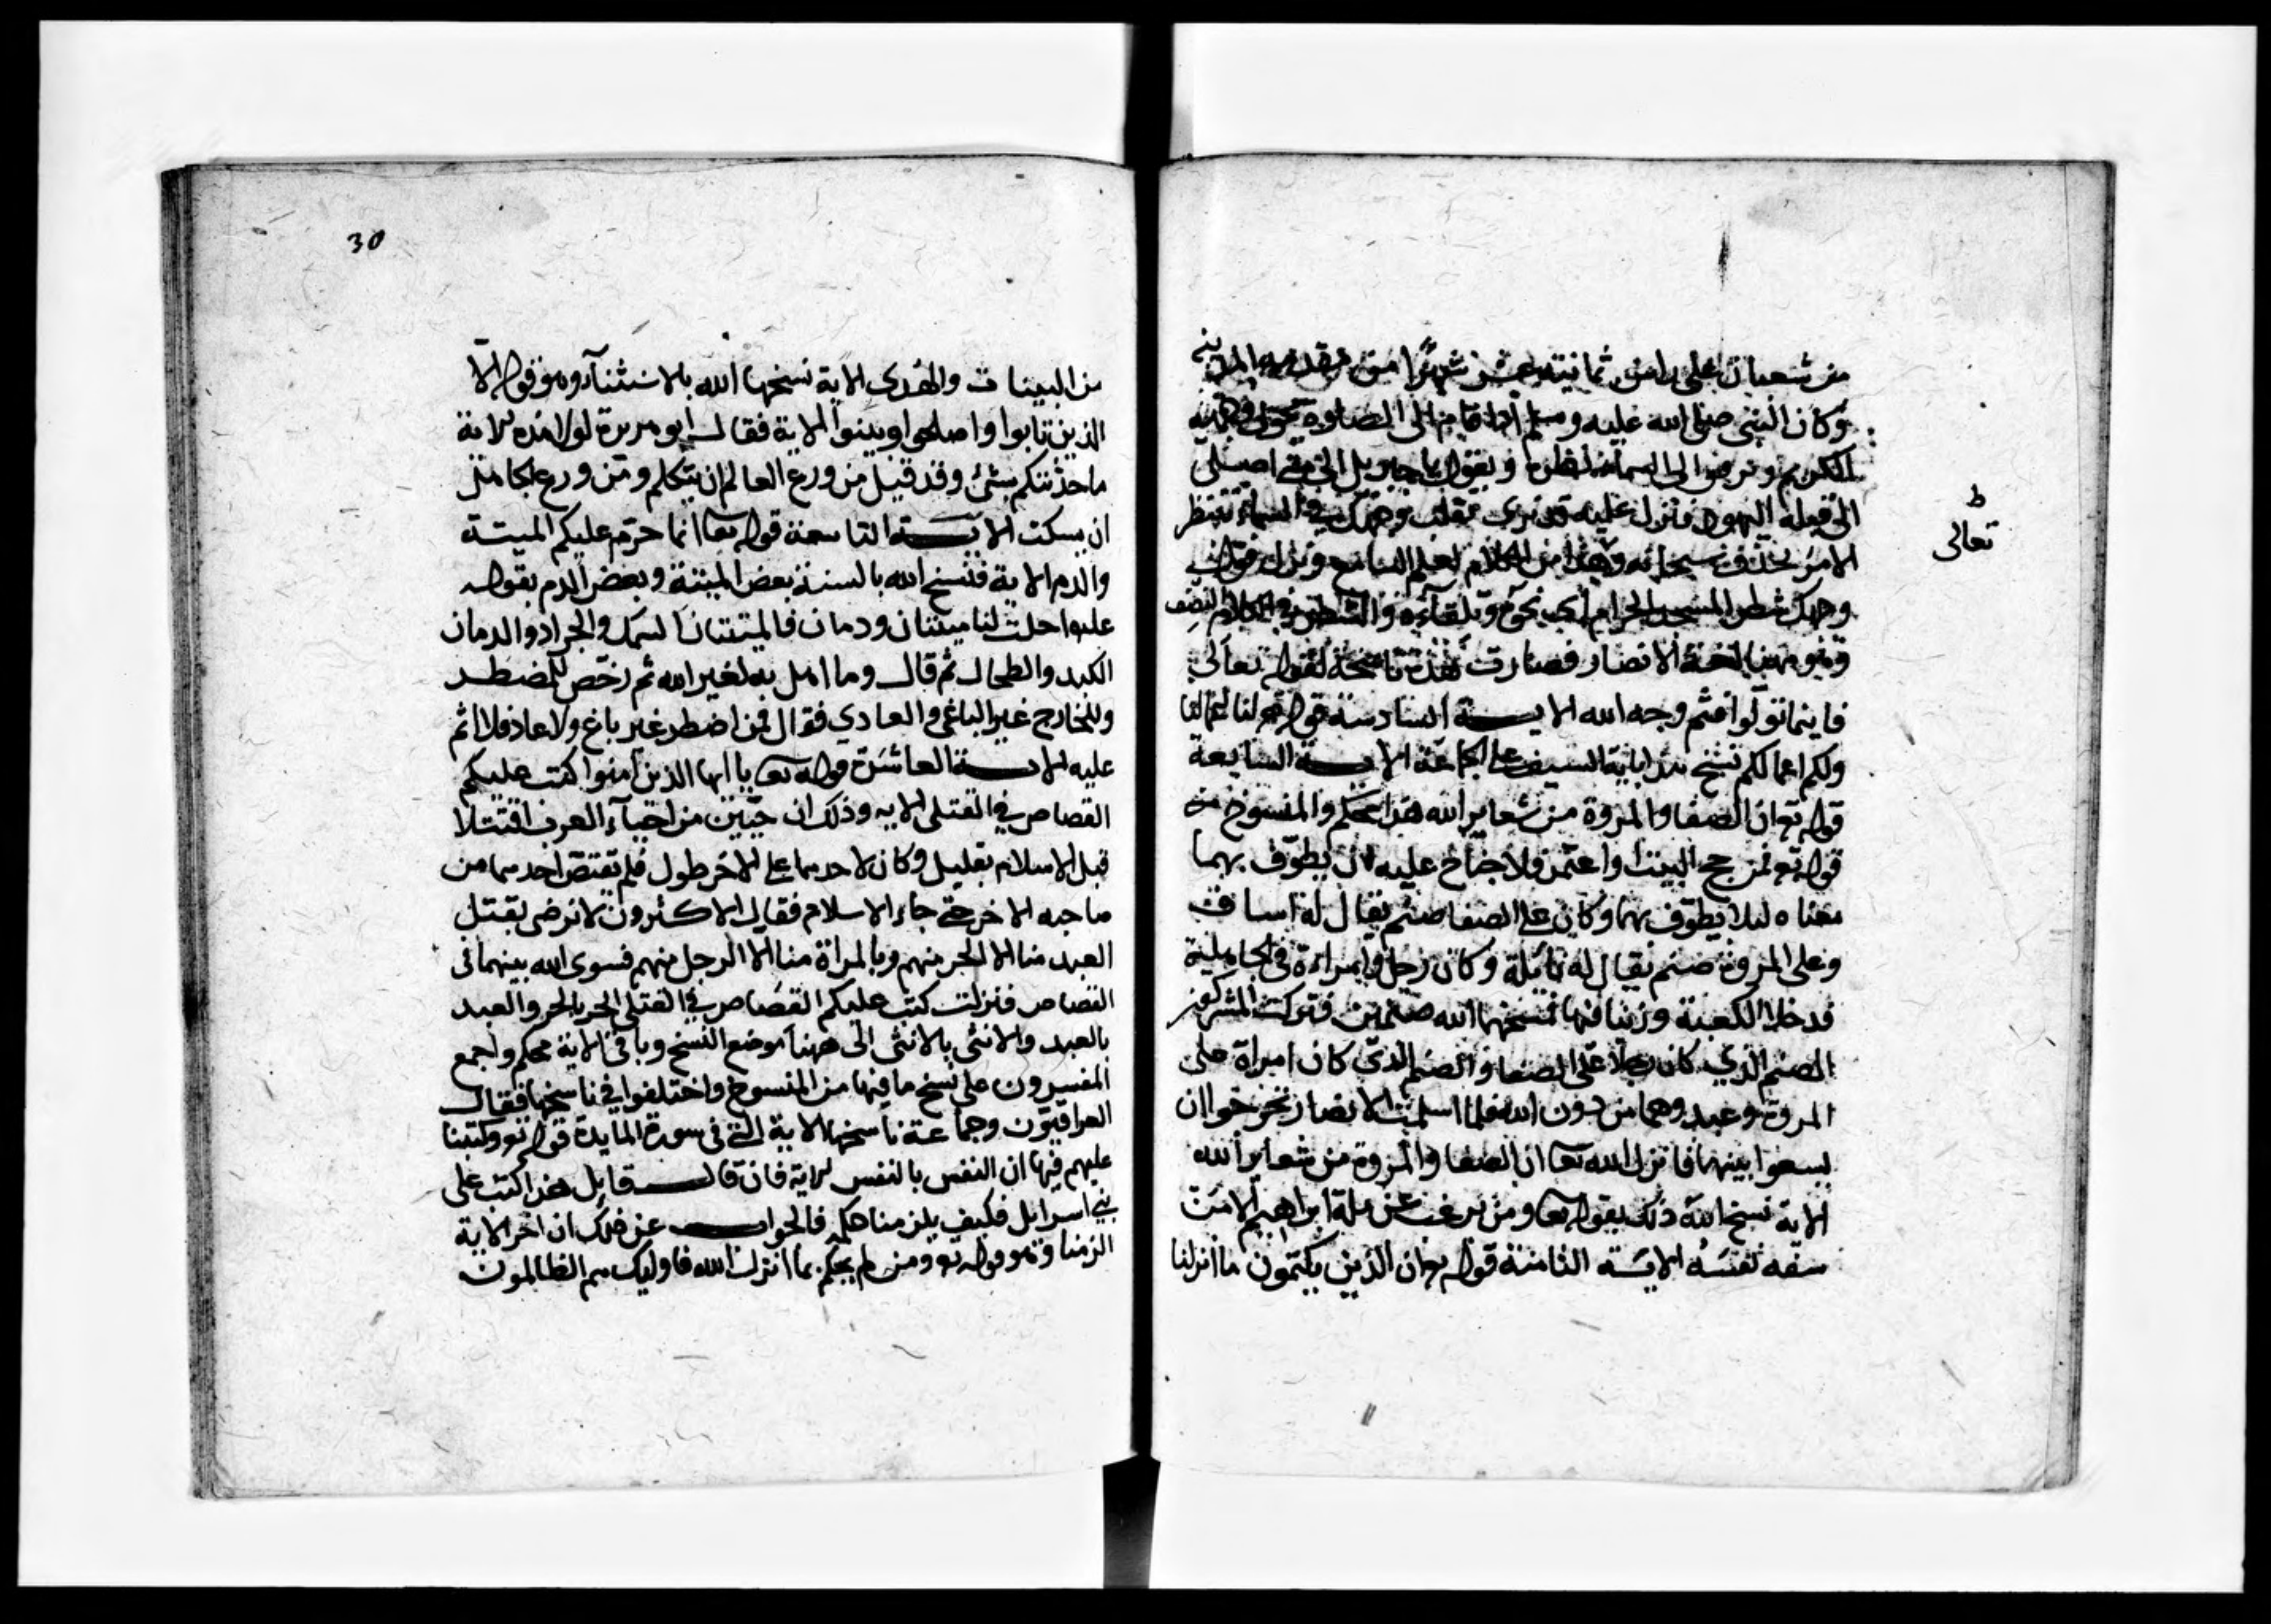 من شعبان على راس ثمانية عشر شهرا من مقدمه المدينة
وكان النبي صلى الله عليه وسلم اذا قام الى الصلوة يحول وجهه
الكريم ويرمق الى السماء بطرفه ويقول يا جبريل الى متى اصلي
الى قبلة اليهود فانزل عليه قد نرى تقلب وجهك في السماء تنتظر
تعالى
الامر فحذف سبحانه وهذا من الكلام لعلم السامع ونزل فول
وجهك شطر المسجد الحرام اي نحوه وتلقآءه والشطر في الكلام النصف
وهو ههنا بلغة الانصار فصارت هذه ناسخة لقوله تعالى
فاينما تولوا فثم وجه الله الايـــة السادسة قوله تع لنا اعمالنا
ولكم اعمالكم نسخ هذا باية السيف على الجماعة الايـــة السابعة
قوله تع ان الصفا والمروة من شعاير الله هذا محكم والمنسوخ منه
قوله تع فمن حج البيت او اعتمر فلا جناح عليه ان يطوف بهما
معناه ليلا يطوف بهما وكان على الصفا صنم يقال له اساف
وعلى المروة صنم يقال له نايلة وكان رجل وامراءة في الجاهلية
فدخلا الكعبة وزنيا فيها فمسخهما الله صنمين فتركت المشركون
الصنم الذي كان رجلا على الصفا والصنم الذي كان امراة على
المروة وعبدوهما من دون الله فلما اسلمت الانصار تحرجوا ان
يسعوا بينهما فانزل الله تعا ان الصفا والمروة من شعاير الله
الاية نسخ الله ذلك بقوله تعا ومن يرغب عن ملة ابراهيم الا من
سفه نفسه الايـة الثامنة قوله تع ان الذين يكتمون ما انزلنا
30
من البينات والهدى الاية نسخها الله بالاستثنآء وهو قوله الا
الذين تابوا واصلحوا وبينوا الاية فقال ابو هريرة لولا هذه الاية
ما حدثتكم بشئ وقد قيل من ورع العالم ان يتكلم ومن ورع الجاهل
ان يسكت الايـــة التاسعة قوله تعا انما حرم عليكم الميتة
والدم الاية فنسخ الله بالسنة بعض الميتة وبعض الدم بقوله
عليه احلت لنا ميتتان ودمان فالميتتان السمك والجراد والدمان
الكبد والطحال ثم قال وما اهل به لغير الله ثم رخص للمضطر
وللخارج غير الباغي والعادي فقال فمن اضطر غير باغ ولا عاد فلا اثم
عليه الايـــة العاشرة قوله تعا يا ايها الذين امنوا كتب عليكم
القصاص في القتلى الايه وذلك ان حيين من احيآء العرب اقتتلا
قبل الاسلام بقليل وكان لاحدهما على الاخر طول فلم تقتص احدهما من
صاحبه الاخر حتى جاء الاسلام فقال الاكثرون لا نرضى بقتل
العبد منا الا الحر منهم وبالمراة منا الا الرجل منهم فسوى الله بينهما في
القصاص فنزلت كتب عليكم القصاص في القتلى الحر بالحر والعبد
بالعبد والانثى بالانثى الى ههنا موضع النسخ وباقي الاية محكم واجمع
المفسرون على نسخ ما فيها من المنسوخ واختلفوا في ناسخها فقال
العراقيون وجماعة ناسخها الاية التي في سورة المايدة قوله تع وكتبنا
عليهم فيها ان النفس بالنفس الاية فان قال قايل هذا كتب على
بني اسرايل فكيف يلزمنا حكمه فالجواب عن ذلك ان اخر الاية
الزمنا وهو قوله تع ومن لم يحكم بما انزل الله فاوليك هم الظالمون